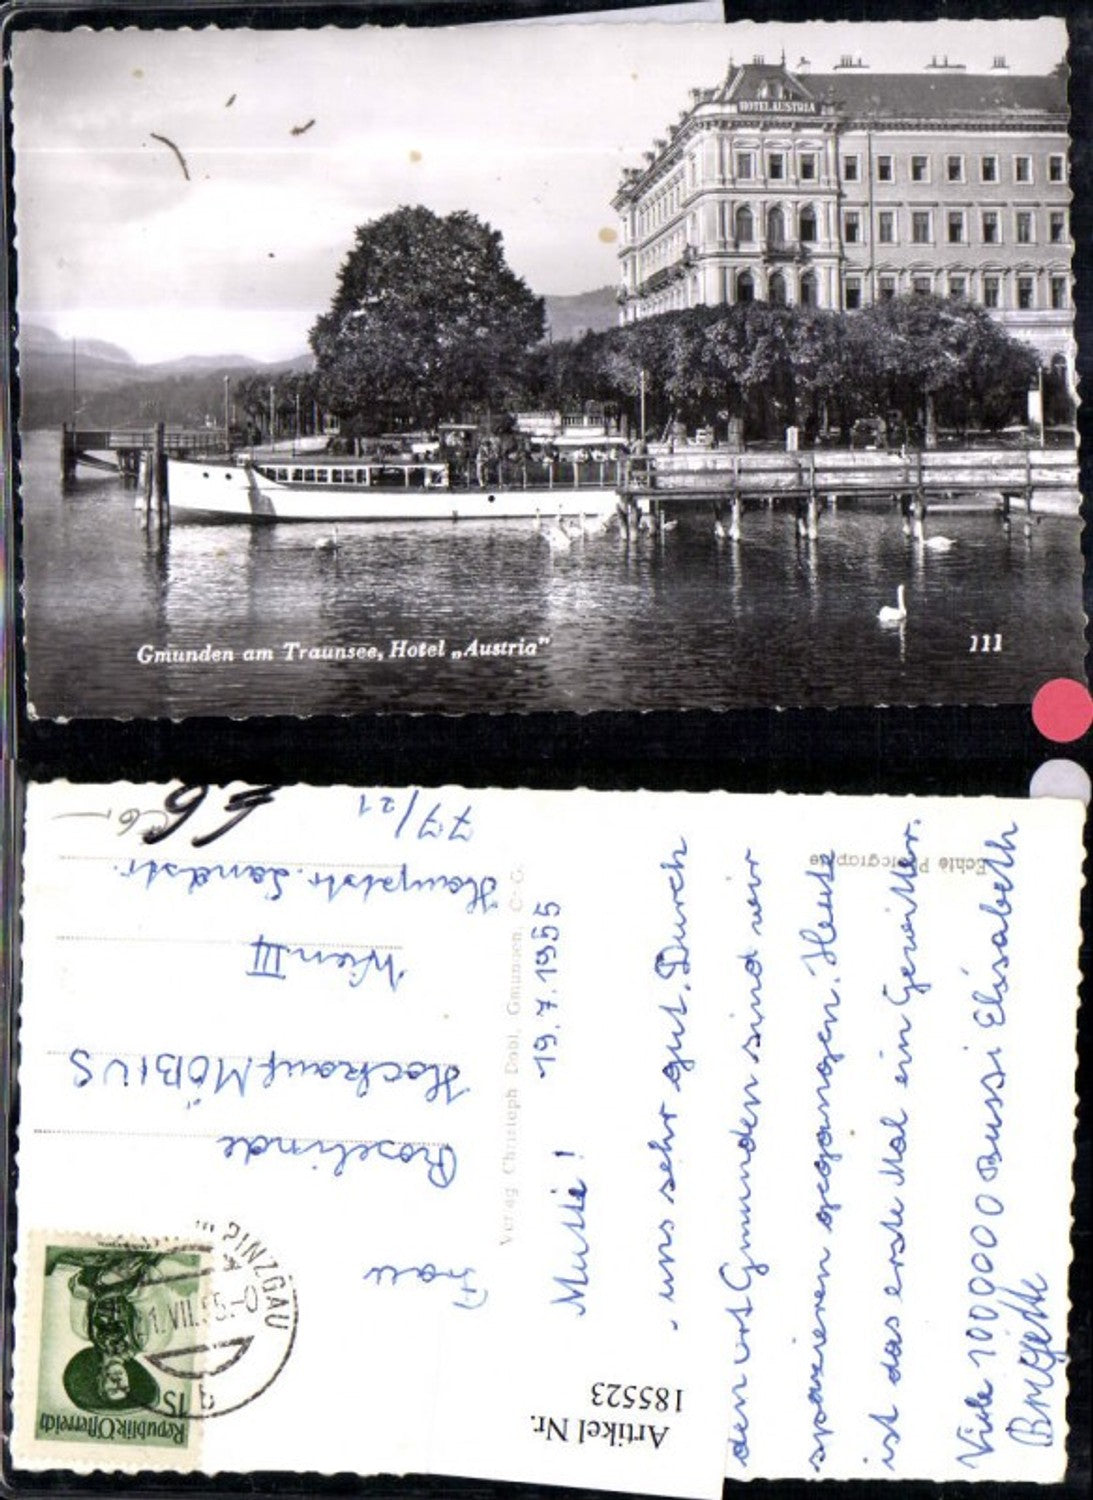 HOTEL AUSTRIA
Gmunden am Traunsee, Hotel „Austria"
111
Echte Photographie
19.7.1955
Mutti!
uns sehr gut. Durch
den Ort Gmunden sind wir
spazieren gegangen. Heute
ist das erste Mal ein Gewitter.
Viele 1000000 Bussi Elisabeth
Brigitte
Verlag Christoph Dobl, Gmunden, O.-Ö.
Frau
Roselinde
Hockauf MÖBIUS
Wien III
Hauptstr. Landstr.
77/21
Republik Österreich
1S
PINZGAU
VII.55-0
Artikel Nr.
185523